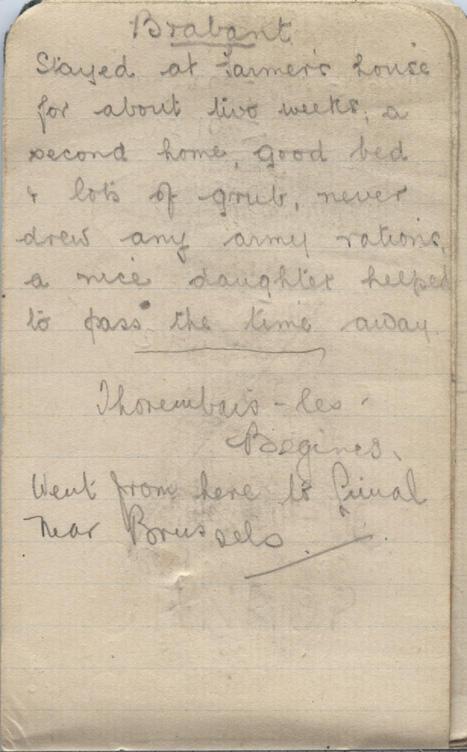 Brabant
Stayed at farmer's house
for about two weeks, a
second home, good bed
& lots of grub, never
drew any army rations,
a nice daughter helped
to pass the time away.
Thorembais-les-
Begines.
Went from here to
Near Brussels